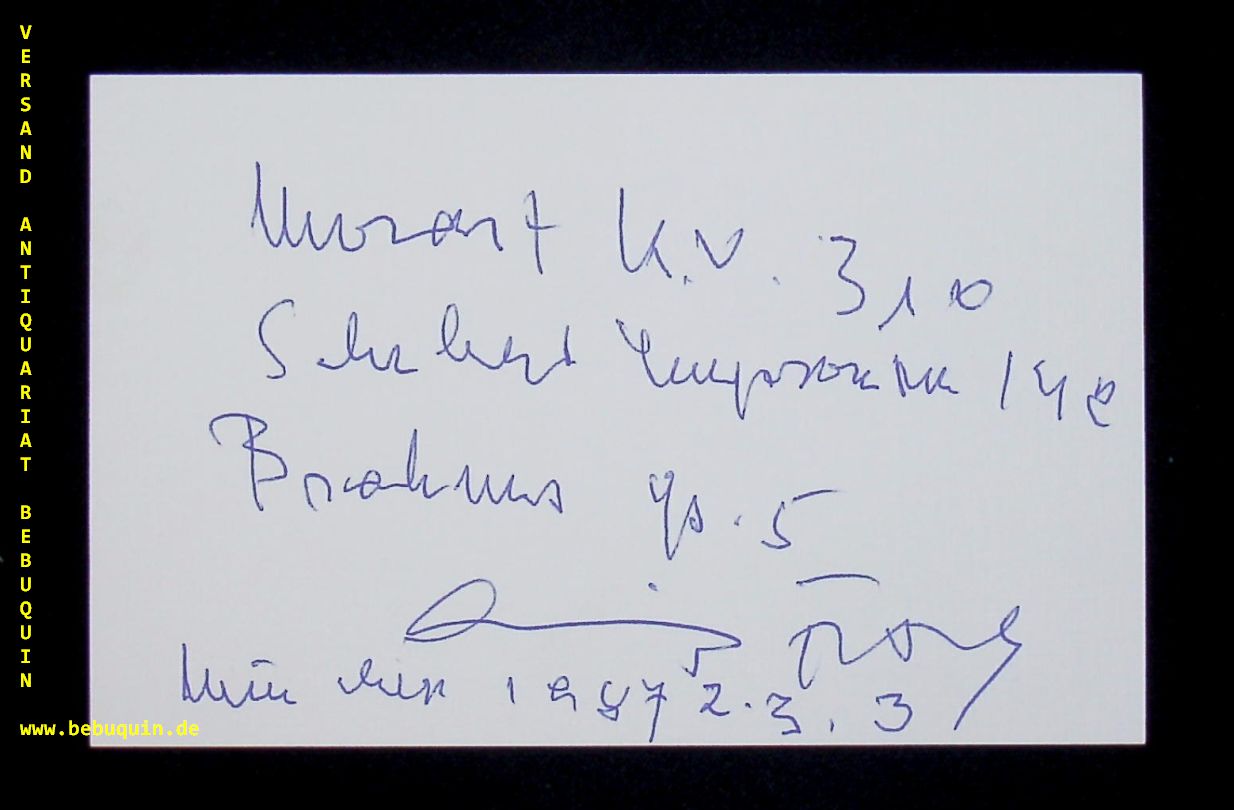 VERSAND ANTIQUARIAT BEBUQUIN
www.bebuquin.de
Mozart K.V. 310
Schubert Impromptu 142
Brahms op. 5
München 1987 2.3.3